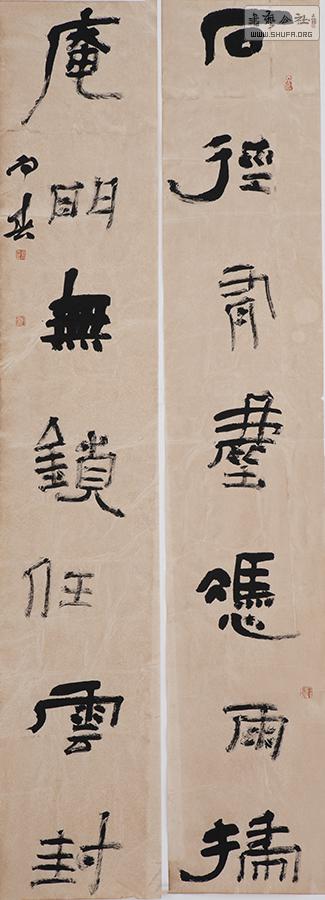 石徑有塵憑雨掃
庵門無鎖任雲封
书艺公社
WWW.SHUFA.ORG